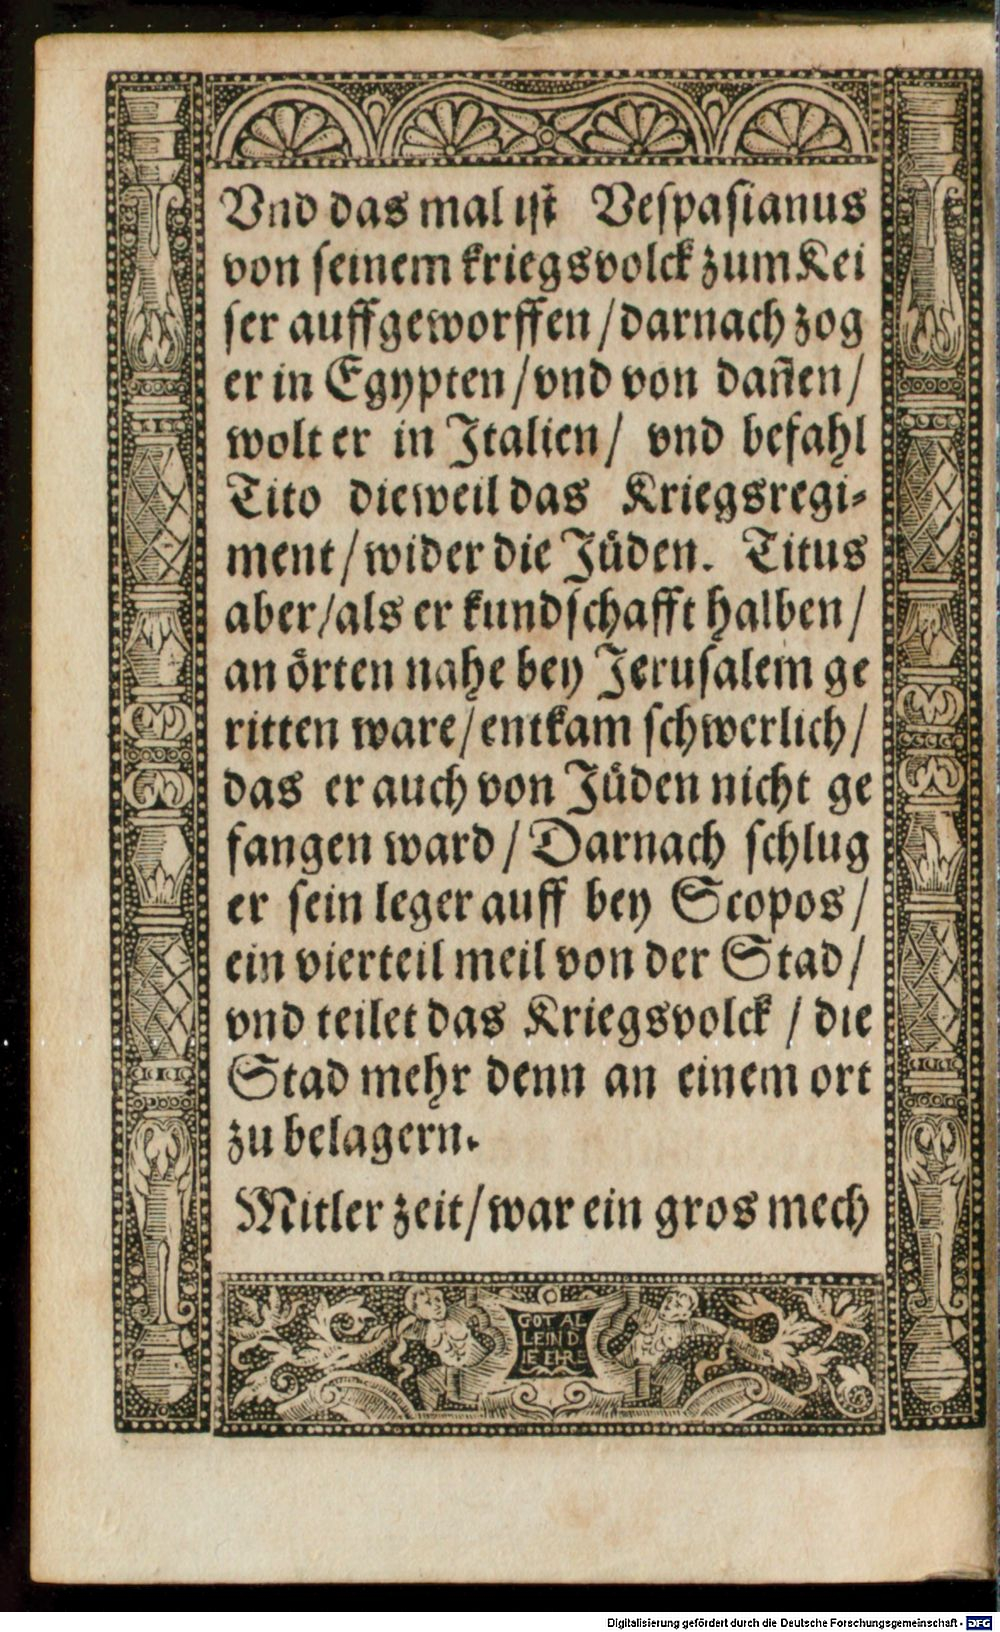 Vnd das mal iſt Veſpaſianus
von ſeinem kriegsvolck zum Kei
ſer auffgeworffen / darnach zog
er in Egypten / vnd von dan̄en /
wolt er in Italien / vnd befahl
Tito dieweil das Kriegsregi⸗
ment / wider die Jüden. Titus
aber / als er kundſchafft halben /
an örten nahe bey Jeruſalem ge
ritten ware / entkam ſchwerlich /
das er auch von Jüden nicht ge
fangen ward / Darnach ſchlug
er ſein leger auff bey Scopos /
ein vierteil meil von der Stad /
vnd teilet das Kriegsvolck / die
Stad mehr denn an einem ort
zu belagern.
Mitler zeit / war ein gros mech
GOT AL
LEIN D
IE EHRE
Digitalisierung gefördert durch die Deutsche Forschungsgemeinschaft - DFG